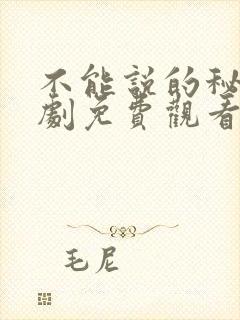 不能說的秘
劇免費觀看
毛尼